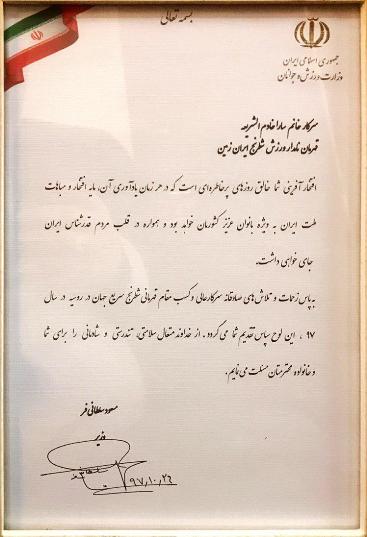 بسمه تعالی
جمهوری اسلامی ایران
وزارت ورزش و جوانان
سرکار خانم سارا خادم الشریعه
قهرمان نامدار ورزش شطرنج ایران زمین
افتخار آفرینی شما خالق روزهای پرخاطره‌ای است که در هر زمان یادآوری آن، مایه افتخار و مباهات
ملت ایران به ویژه بانوان عزیز کشورمان خواهد بود و همواره در قلب مردم قدرشناس ایران
جای خواهی داشت.
به پاس زحمات و تلاش‌های صادقانه سرکارعالی و کسب مقام قهرمانی شطرنج سریع جهان در روسیه در سال
۹۷ ، این لوح سپاس تقدیم شما می گردد. از خداوند متعال سلامتی، تندرستی و شادمانی را برای شما
و خانواده محترمتان مسئلت می نمایم.
مسعود سلطانی فر
وزیر
۹۷,۱۰,۲۶